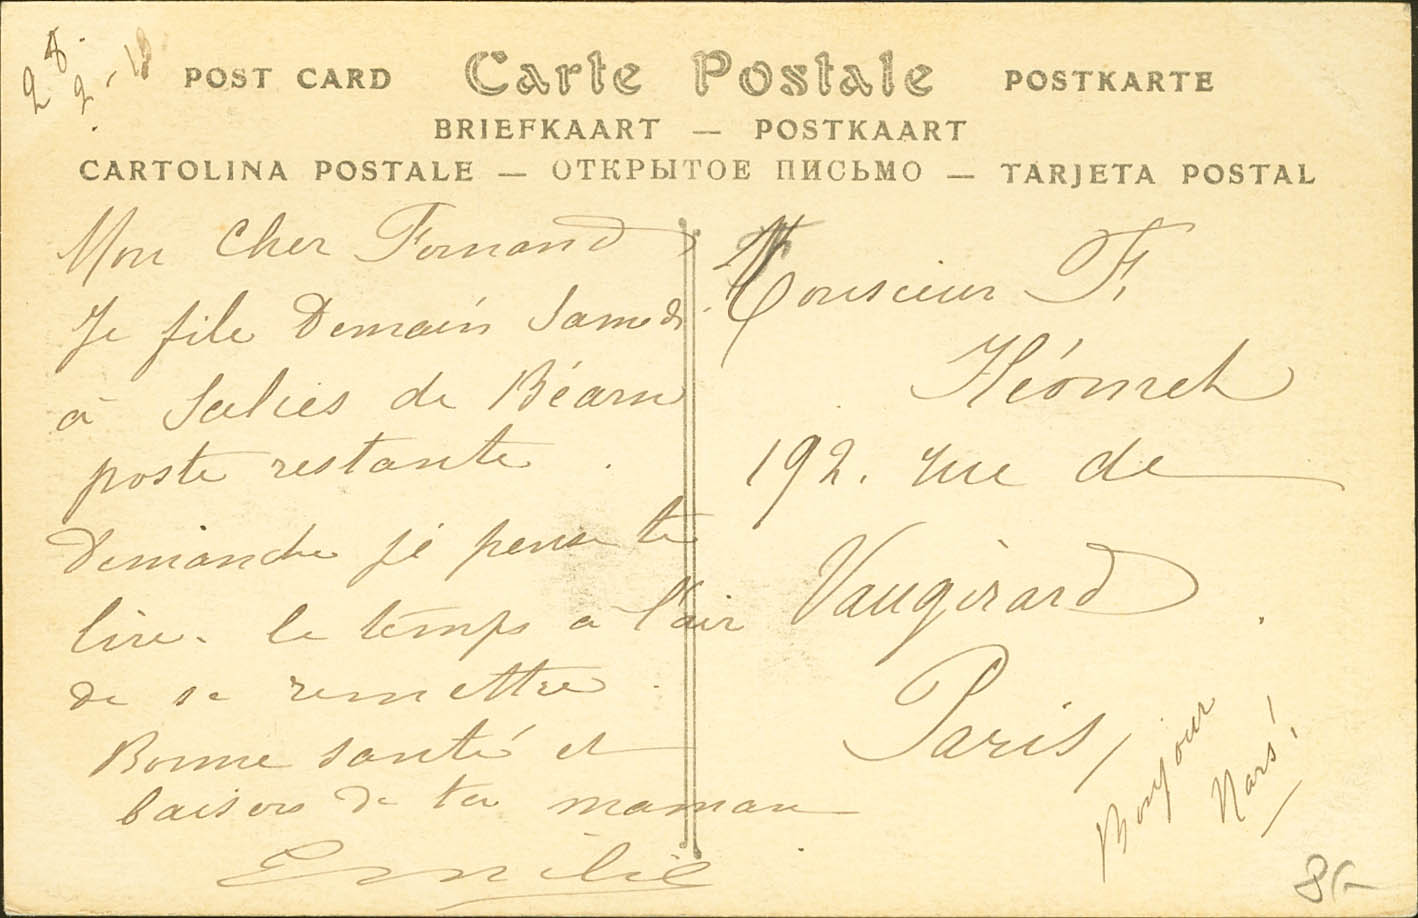 28.
2-18
POST CARD Carte Postale POSTKARTE
BRIEFKAART — POSTKAART
CARTOLINA POSTALE — ОТКРЫТОЕ ПИСЬМО — TARJETA POSTAL
Mon Cher Fernand
Je file Demain Samedi
à Salies de Béarn
poste restante.
Dimanche je pense te
lire. le temps a l'air
de se remettre.
Bonne santé et
baisers de ta maman
Emilie
Monsieur F.
192. rue de
Vaugirard.
Paris,
Bonjour
Mars!